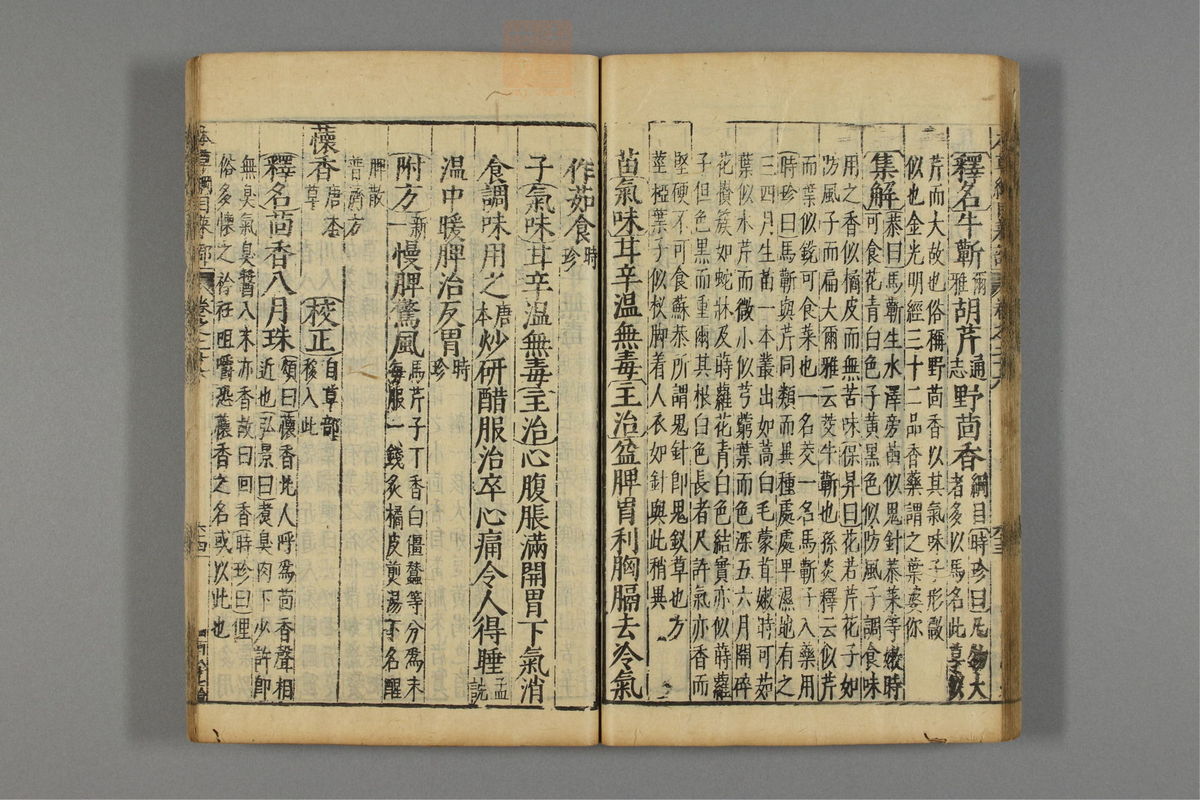 釋名牛蘄爾雅胡芹通志野茴香綱目時珍曰凡物大者多以馬名此草似
芹而大故也俗稱野茴香以其氣味子形微
似也金光明經三十二品香藥謂之葉婆你
集解恭曰馬蘄生水澤旁苗似鬼針菾菜等嫩時可食花青白色子黃黑色似防風子調食味
用之香似橘皮而無苦味保昇曰花若芹花子如
防風子而扁大爾雅云茭牛蘄也孫炎釋云似芹
而葉似銳可食菜也一名茭一名馬蘄子入藥用
時珍曰馬蘄與芹同類而異種處處卑濕地有之
三四月生苗一本叢出如蒿白毛蒙茸嫩時可茹
葉似水芹而微小似芎藭葉而色深五六月開碎
花攢簇如蛇牀及蒔蘿花青白色結實亦似蒔蘿
子但色黑而重爾其根白色長者尺許氣亦香而
堅硬不可食蘇恭所謂鬼針即鬼釵草也方
莖椏葉子似杈脚着人衣如針與此稍異
苗氣味甘辛溫無毒主治益脾胃利胸膈去冷氣
作茹食時珍
子氣味甘辛溫無毒主治心腹脹滿開胃下氣消
食調味用之唐本炒研醋服治卒心痛令人得睡孟詵
温中暖脾治反胃時珍
附方新一慢脾驚風馬芹子丁香白僵蠶等分爲末每服一錢炙橘皮煎湯下名醒
脾散
普濟方
蘹香唐本草校正自草部移入此
釋名茴香八月珠頌曰蘹香北人呼爲茴香聲相近也弘景曰煮臭肉下少許即
無臭氣臭醬入末亦香故曰回香時珍曰俚
俗多懷之衿衽咀嚼恐蘹香之名或以此也
本草綱目菜部
卷之二十六
六十四